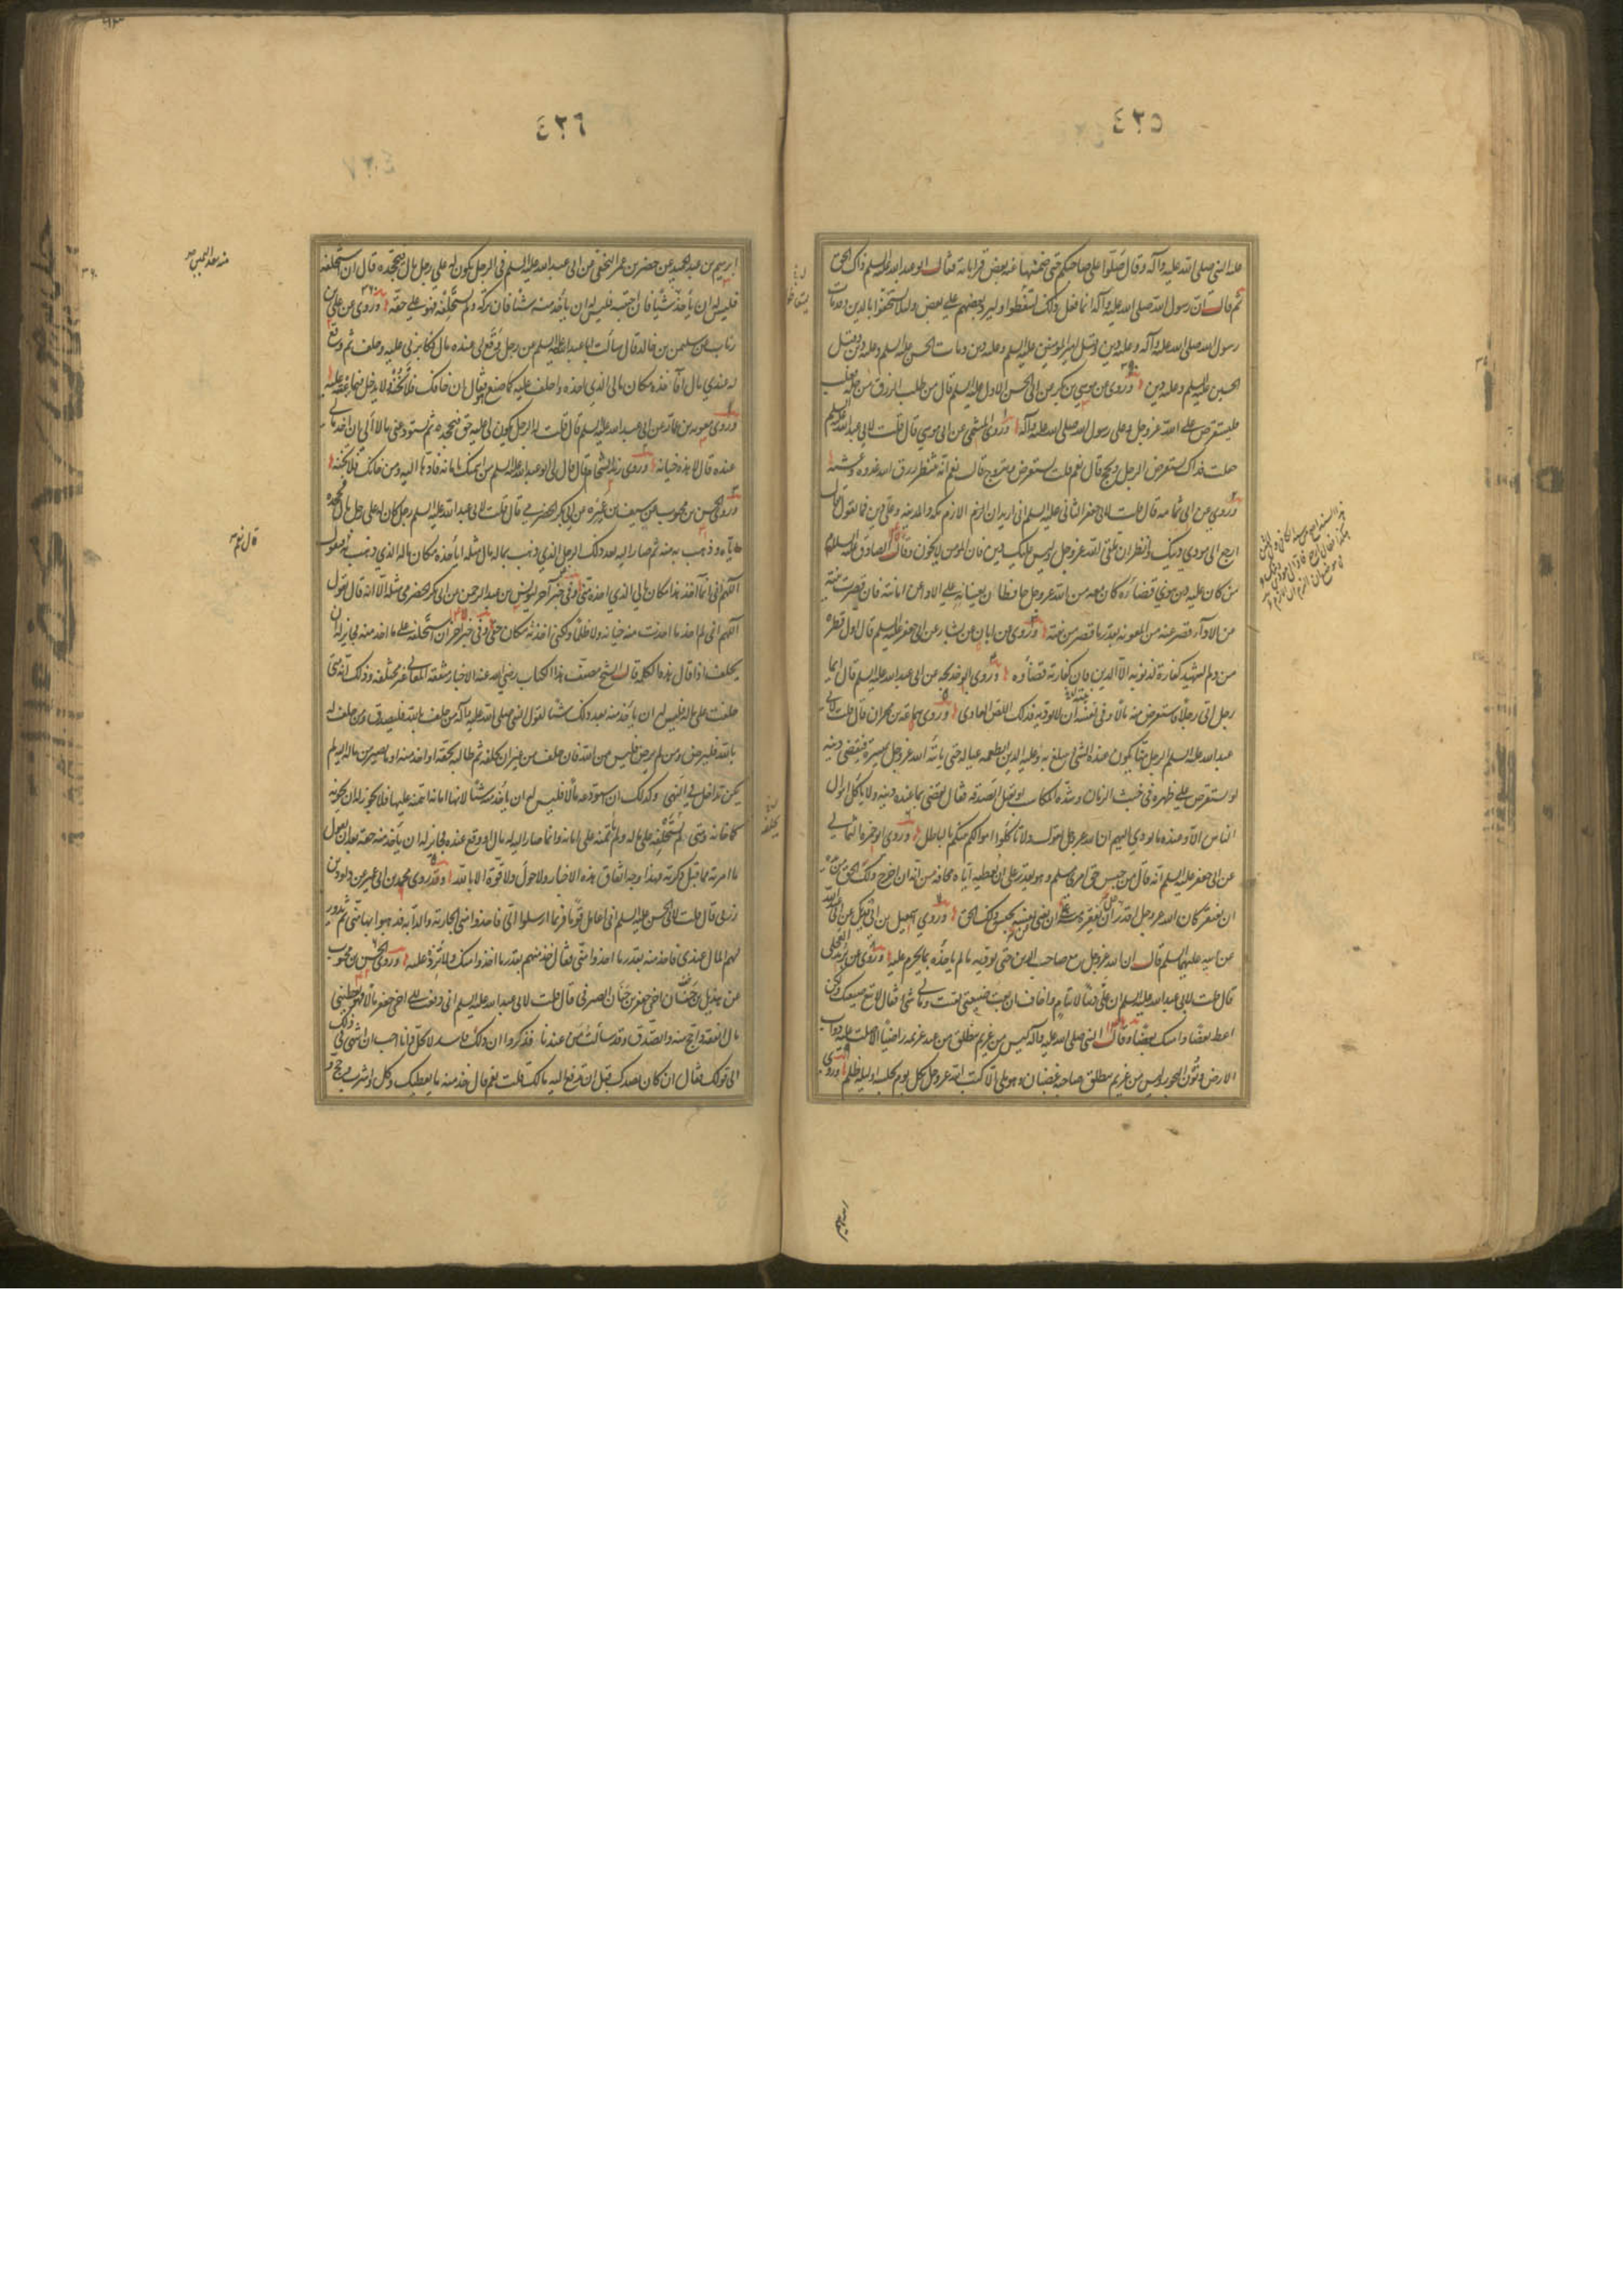 ٤٢٥
عليه النبي صلى الله عليه وآله وقال صلوا على صاحبكم حتى ضمنهما عنه بعض قراباته فقال ابو عبد الله عليه السلم ذاك الحق
ثم قال ان رسول الله صلى الله عليه وآله انما فعل ذلك ليتعظوا وليرد بعضهم على بعض ولئلا يستخفوا بالدين وقد مات
رسول الله صلى الله عليه وآله وعليه دين وقتل امير المومنين عليه السلم وعليه دين ومات الحسن عليه السلم وعليه دين وقتل
الحسين عليه السلم وعليه دين وروى عن موسى بن بكر عن ابى الحسن الاول عليه السلم قال من طلب الرزق من حله فغلب
فليستقرض على الله عز وجل وعلى رسول الله صلى الله عليه وآله وروى الميثمى عن ابى موسى قال قلت لابى عبد الله عليه السلم
جعلت فداك يستقرض الرجل ويحج قال نعم قلت يستقرض ويتزوج قال نعم انه ينتظر رزق الله غدوة وعشية
وروى عن ابى ثمامة قال قلت لابى جعفر الثانى عليه السلم انى اريد ان الزم مكة والمدينة وعلى دين فما تقول قال
ارجع الى مودى دينك وانظر ان تلقى الله عز وجل وليس عليك دين فان المومن لا يخون وقال الصادق عليه السلم
من كان عليه دين ينوى قضاءه كان معه من الله عز وجل حافظان يعينانه على الاداء عن امانته فان قصرت نيته
من الاداء قصر عنه من المعونة بقدر ما قصر من نيته وروى عن ابان عن بشار عن ابى جعفر عليه السلم قال اول قطرة
من دم الشهيد كفارة لذنوبه الا الدين فان كفارته قضاؤه وروى ابو خديجة عن ابى عبد الله عليه السلم قال ايما
رجل اتى رجلا فاستقرض منه مالا وفى نيته ان لا يوديه فذلك اللص العادى وروى سماعة بن مهران قال قلت لابى
عبد الله عليه السلم الرجل منا يكون عنده الشىء يتبلغ به وعليه الدين ايطعمه عياله حتى ياتيه الله عز وجل بميسرة فيقضى دينه
او يستقرض على ظهره فى خبث الزمان وشدة المكاسب او يقبل الصدقة فقال يقضى بما عنده دينه ولا ياكل اموال
الناس الا وعنده ما يودى اليهم ان الله عز وجل يقول ولا تأكلوا اموالكم بينكم بالباطل وروى ابو حمزة الثمالى
عن ابى جعفر عليه السلم انه قال من حبس حق امرئ مسلم وهو يقدر على ان يعطيه اياه مخافة من انه ان اخرج ذلك الحق من يده
ان يفتقر كان الله عز وجل اقدر على ان يفقره منه على ان يغنى نفسه بحبس ذلك الحق وروى اسمعيل بن ابى فديك عن ابى عبد الله
عن ابيه عليهما السلم قال ان الله عز وجل مع صاحب الدين حتى يوديه ما لم يأخذه مما يحرم عليه وروى عن بريد العجلى
قال قلت لابى عبد الله عليه السلم ان على دينا لايتام واخاف ان بعت ضيعتى بقيت ومالى شىء فقال لا تبع ضيعتك ولكن
اعط بعضا وامسك بعضا وقال النبى صلى الله عليه وآله ليس من غريم ينطلق من عند غريمه راضيا الا صلت عليه دواب
الارض ونون البحور وليس من غريم ينطلق صاحبه غضبان وهو ملى الا كتب الله عز وجل بكل يوم يحبسه او ليلة ظلما وروى
ابرهيم
٤٢٦
ابرهيم بن عبد الحميد عن خضر بن عمر النخعى عن ابى عبد الله عليه السلم فى الرجل يكون له على رجل مال فيجحده قال ان استحلفه
فليس له ان يأخذ شيئا فان احتسبه فليس له ان يأخذ منه شيئا فان تركه ولم يستحلفه فهو على حقه وروى عن على بن
رئاب عن سليمن بن خالد قال سألت ابا عبد الله عليه السلم عن رجل وقع لى عنده مال فكابرنى عليه وحلف ثم وقع
له عندى مال آخذه مكان مالى الذى اخذه واحلف عليه كما صنع فقال ان خانك فلا تخنه ولا تدخل فيما عبته عليه
وروى معوية بن عمار عن ابى عبد الله عليه السلم قال قلت له الرجل يكون لى عليه حق فيجحده ثم يستودعنى مالا ألى ان آخذ مالى
عنده قال لا هذه خيانة وروى زيد الشحام قال قال لى ابو عبد الله عليه السلم من ائتمنك امانة فأدها اليه ومن خانك فلا تخنه
وروى الحسن بن محبوب عن سيف بن عميرة عن ابى بكر الحضرمى قال قلت لابى عبد الله عليه السلم رجل كان له على رجل مال فجحده
اياه وذهب به منه ثم صار اليه بعد ذلك للرجل الذى ذهب بماله مال مثله ايأخذه مكان ماله الذى ذهب به يقول
اللهم انى انما آخذ هذا مكان مالى الذى اخذه منى وفى خبر آخر ليونس بن عبد الرحمن عن ابى بكر الحضرمى مثله الا انه قال يقول
اللهم انى لم آخذ ما اخذت منه خيانة ولا ظلما ولكنى اخذته مكان حقى وفى خبر آخر ان استحلفه على ما اخذ منه فجايز له ان
يحلف اذا قال هذه الكلمة قال الشيخ مصنف هذا الكتاب رضى الله عنه هذه الاخبار متفقة المعانى غير مختلفة وذلك انه متى
حلفه على ماله فليس له ان يأخذ منه بعد ذلك شيئا لقول النبى صلى الله عليه وآله من حلف بالله فليصدق ومن حلف له
بالله فليرض ومن لم يرض فليس من الله فان حلف من غير ان يحلفه ثم طالبه بحقه او اخذ منه او مما يصير من ماله اليه لم
يكن بداخل فى النهى وكذلك ان استودعه مالا فليس له ان ياخذ منه شيئا لانها امانة ائتمنه عليها فلا يجوز له ان يخونه
كما خانه ومتى لم يستحلفه على ماله ولم يأتمنه على امانة وانما صار اليه له مال او وقع عنده فجايز له ان يأخذ منه حقه بعد ان يقول
ما امر به مما قبل ذكرته فهذا وجه اتفاق هذه الاخبار ولا حول ولا قوة الا بالله وقد روى محمد بن ابى عمير عن داود بن
زربى قال قلت لابى الحسن عليه السلم انى اعامل قوما فربما ارسلوا الى فاخذوا منى الجارية والدابة فذهبوا بها منى ثم يدور
لهم المال عندى فاخذ منه بقدر ما اخذوا منى فقال خذ منهم بقدر ما اخذوا منك ولا تزد عليه وروى الحسن بن محبوب
عن هذيل بن حنان اخى جعفر بن حنان الصيرفى قال قلت لابى عبد الله عليه السلم انى دفعت الى اخى جعفر مالا فهو يعطينى
ما انفقه واحج منه واتصدق وقد سألت من عندنا فذكروا ان ذلك فاسد لا يحل وانا احب ان انتهى فى ذلك
الى قولك فقال اكان يصلك قبل ان تدفع اليه مالك قلت نعم قال خذ منه ما يعطيك وكل واشرب وحج و
قال نعم